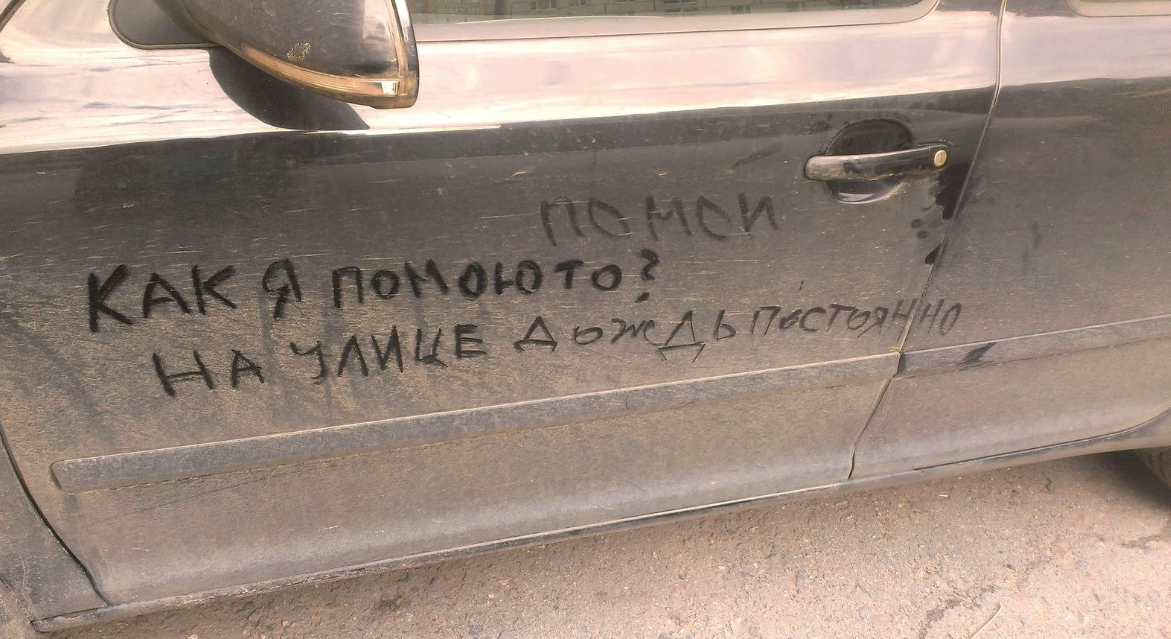 ПОМОИ
КАК Я ПОМОЮТО?
НА УЛИЦЕ ДОЖДЬ ПОСТОЯННО